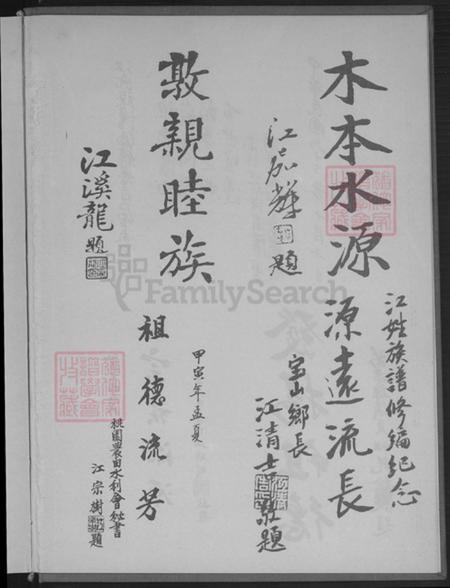 木本水源
江嘉輝題
敦親睦族
江溪龍題
江姓族譜修編紀念
源遠流長
寶山鄉長
江清吉敬題
甲寅年孟夏
祖德流芳
桃園農田水利會秘書
江宗樹題
FamilySearch